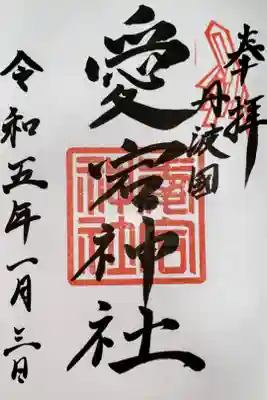 奉拝
丹波国
愛宕神社
令和五年一月三日